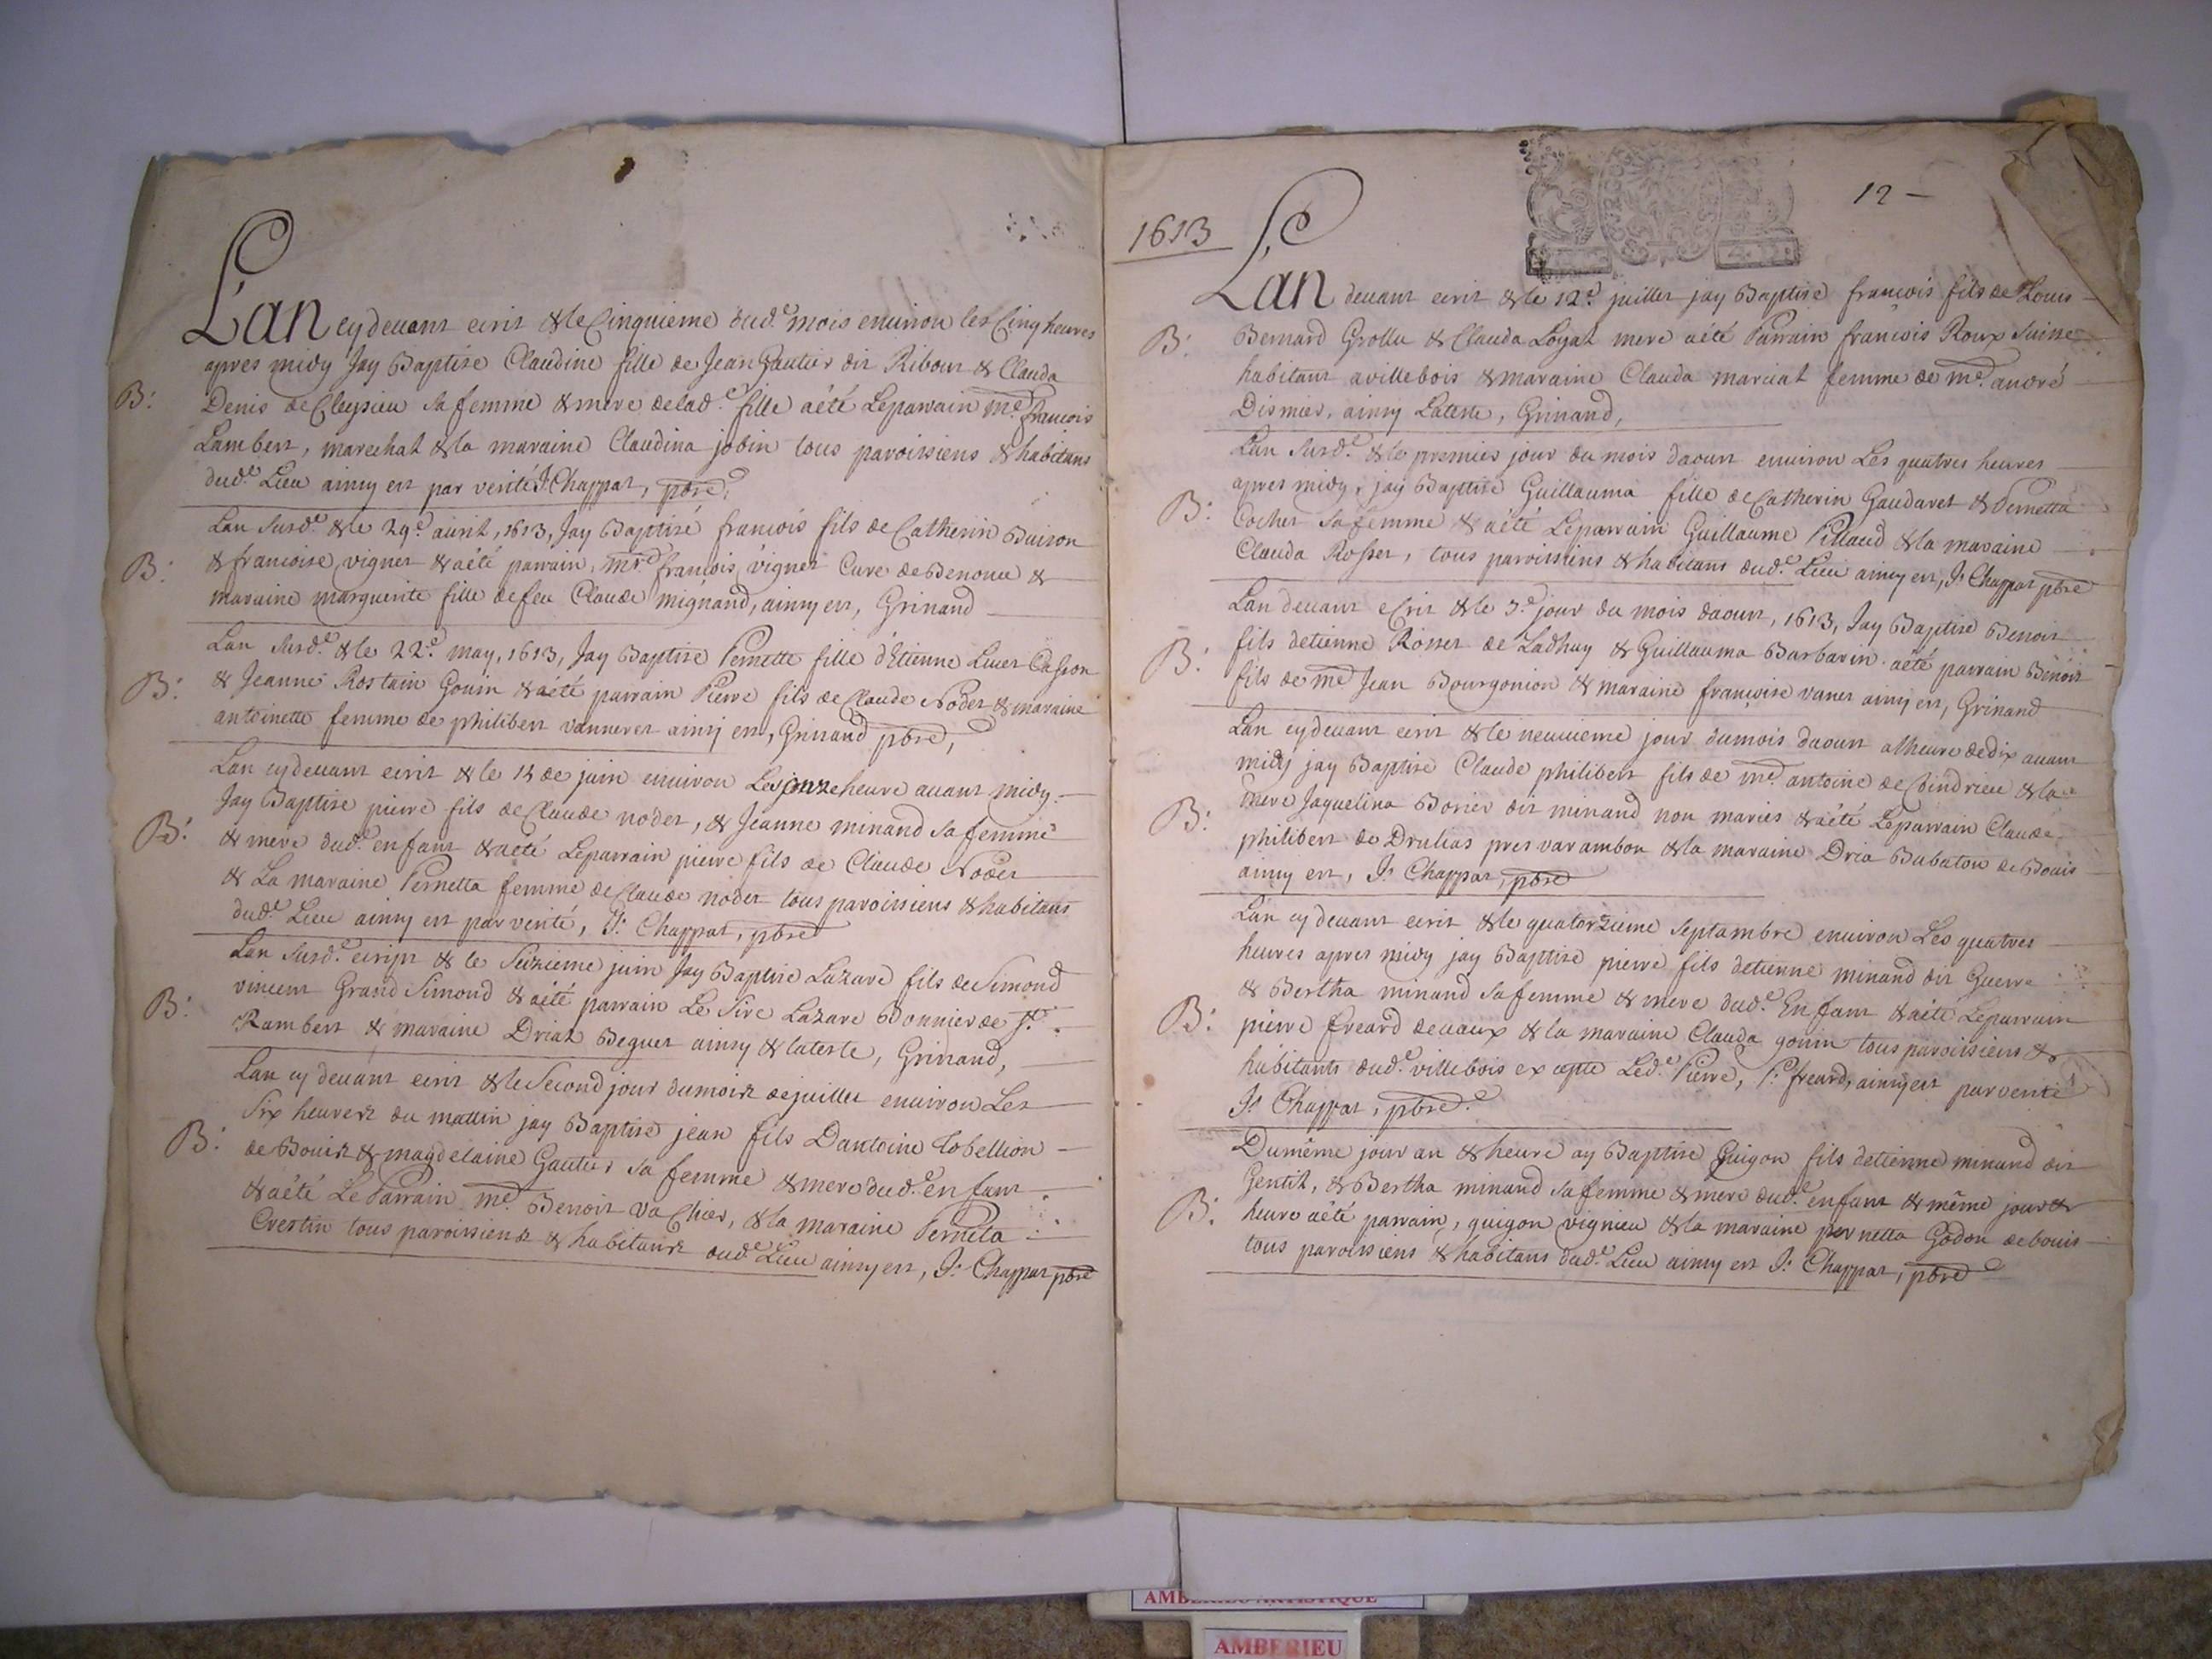 L'an cy devant ecrit & le Cinquieme dud.e mois environ les Cinq heures
apres midy Jay Baptise Claudine fille de Jean Gautier dit Ribour & Clauda
B: Denis de Cleysieu sa femme & mere de lad.e fille aété Leparrain me francois
Lambert, marechal & la maraine Claudina jobin tous paroissiens & habitans
dud.e Lieu ainsy est par verité J. Chappat, pbre
Lan susd.e & le 29.e avril, 1613, Jay Baptisé francois fils de Catherin Buison
B: & francoise vignet & aété parrain, mr.e francois vignet Cure de Benonce &
maraine marguerite fille de feu Claude mignand, ainsy est, Grinand
Lan susd.e & le 22.e may, 1613, Jay Baptise Pernette fille d'Etienne Luet
B: & Jeanne Rostain Gouin & aété parrain Pierre fils de Claude Nodet & maraine
antoinette femme de philibert ainsy est, Grinand pbre,
Lan cy devant ecrit & le de juin environ Les onze heure avant midy
Jay Baptise pierre fils de Claude nodet, & Jeanne minand sa femme
B: & mere dud.e enfant & aeté Leparrain pierre fils de Claude Nodet
& La maraine Pernetta femme de Claude nodet tous paroissiens & habitans
dud.e Lieu ainsy est par verité, J. Chappat, pbre
Lan susd.e & le Seizieme juin Jay Baptise Lazare fils de Simond
B: vincent Grand Simond & aété parrain Le Sire Lazare Bonnier de St.
Rambert & maraine Driat Beguet ainsy & lateste, Grinand,
Lan cy devant ecrit & le Second jour du mois de juillet environ Les
Six heures du mattin jay Baptise jean fils Dantoine tobellion
B: de Bouis & magdelaine Gautier sa femme & mere dud.e enfant
& aété Le Parrain me. Benoit va Chier, & la maraine Perneta
Crestin tous paroissiens & habitans dud.e Lieu ainsy est, J. Chappat pbre
12
1613
L'an devant ecrit & le 12.e juillet jay Baptise francois fils de Louis
B: Bernard Grollu & Clauda Loyat mere aété Parrain francois Roux Suisse
habitant avillebois & maraine Clauda marciat femme de me. andré
Dismier, ainsy Lateste, Grinand,
Lan susd.e & le premier jour du mois daoust environ Les quatres heures
apres midy, jay Baptisé Guillauma fille de Catherin Gaudaret & Pernetta
B: Cochet sa femme & aété Leparrain Guillaume Pillaud & la maraine
Clauda Rosset, tous paroissiens & habitans dud.e Lieu ainsy est, J. Chappat pbre
Lan devant ecrit & le 3.e jour du mois daoust, 1613, Jay Baptise Benoit
B: fils detienne Rosset de Ladhuy & Guillauma Barbarin aété parrain Benoit
fils de me Jean Bourgonion & maraine françoise vanet ainsy est, Grinand
Lan cy devant ecrit & le neuvieme jour du mois daoust alheure de dix avant
midy jay Baptise Claude philibert fils de me antoine de Coindrieu & la
B: mere Jaquelina Borier dit minand non mariés & aété Leparrain Claude
philibert de Drulias pres varambon & la maraine Dria Babaton de Bouis
ainsy est, J. Chappat, pbre
L'an cy devant ecrit & le quatorzieme Septambre environ Les quatres
heures apres midy jay Baptisé pierre fils detienne minand dit Guerre
& Bertha minand sa femme & mere dud.e Enfant & aété Leparrain
B: pierre freard devaux & la maraine Clauda gouin tous paroissiens &
habitants dud.e villebois excepte Led.e Pierre, P. freard, ainsy est par verité
J. Chappat, pbre.
Du même jour an & heure ay Baptisé Guigon fils detienne minand dit
Gentit, & Bertha minand sa femme & mere dud.e enfant & même jour &
B. heure aété parrain, guigon vignieu & la maraine pernetta Godon de bouis
tous paroissiens & habitans dud.e Lieu ainsy est J. Chappat, pbre
AMBERIEU ARTISTIQUE
AMBERIEU